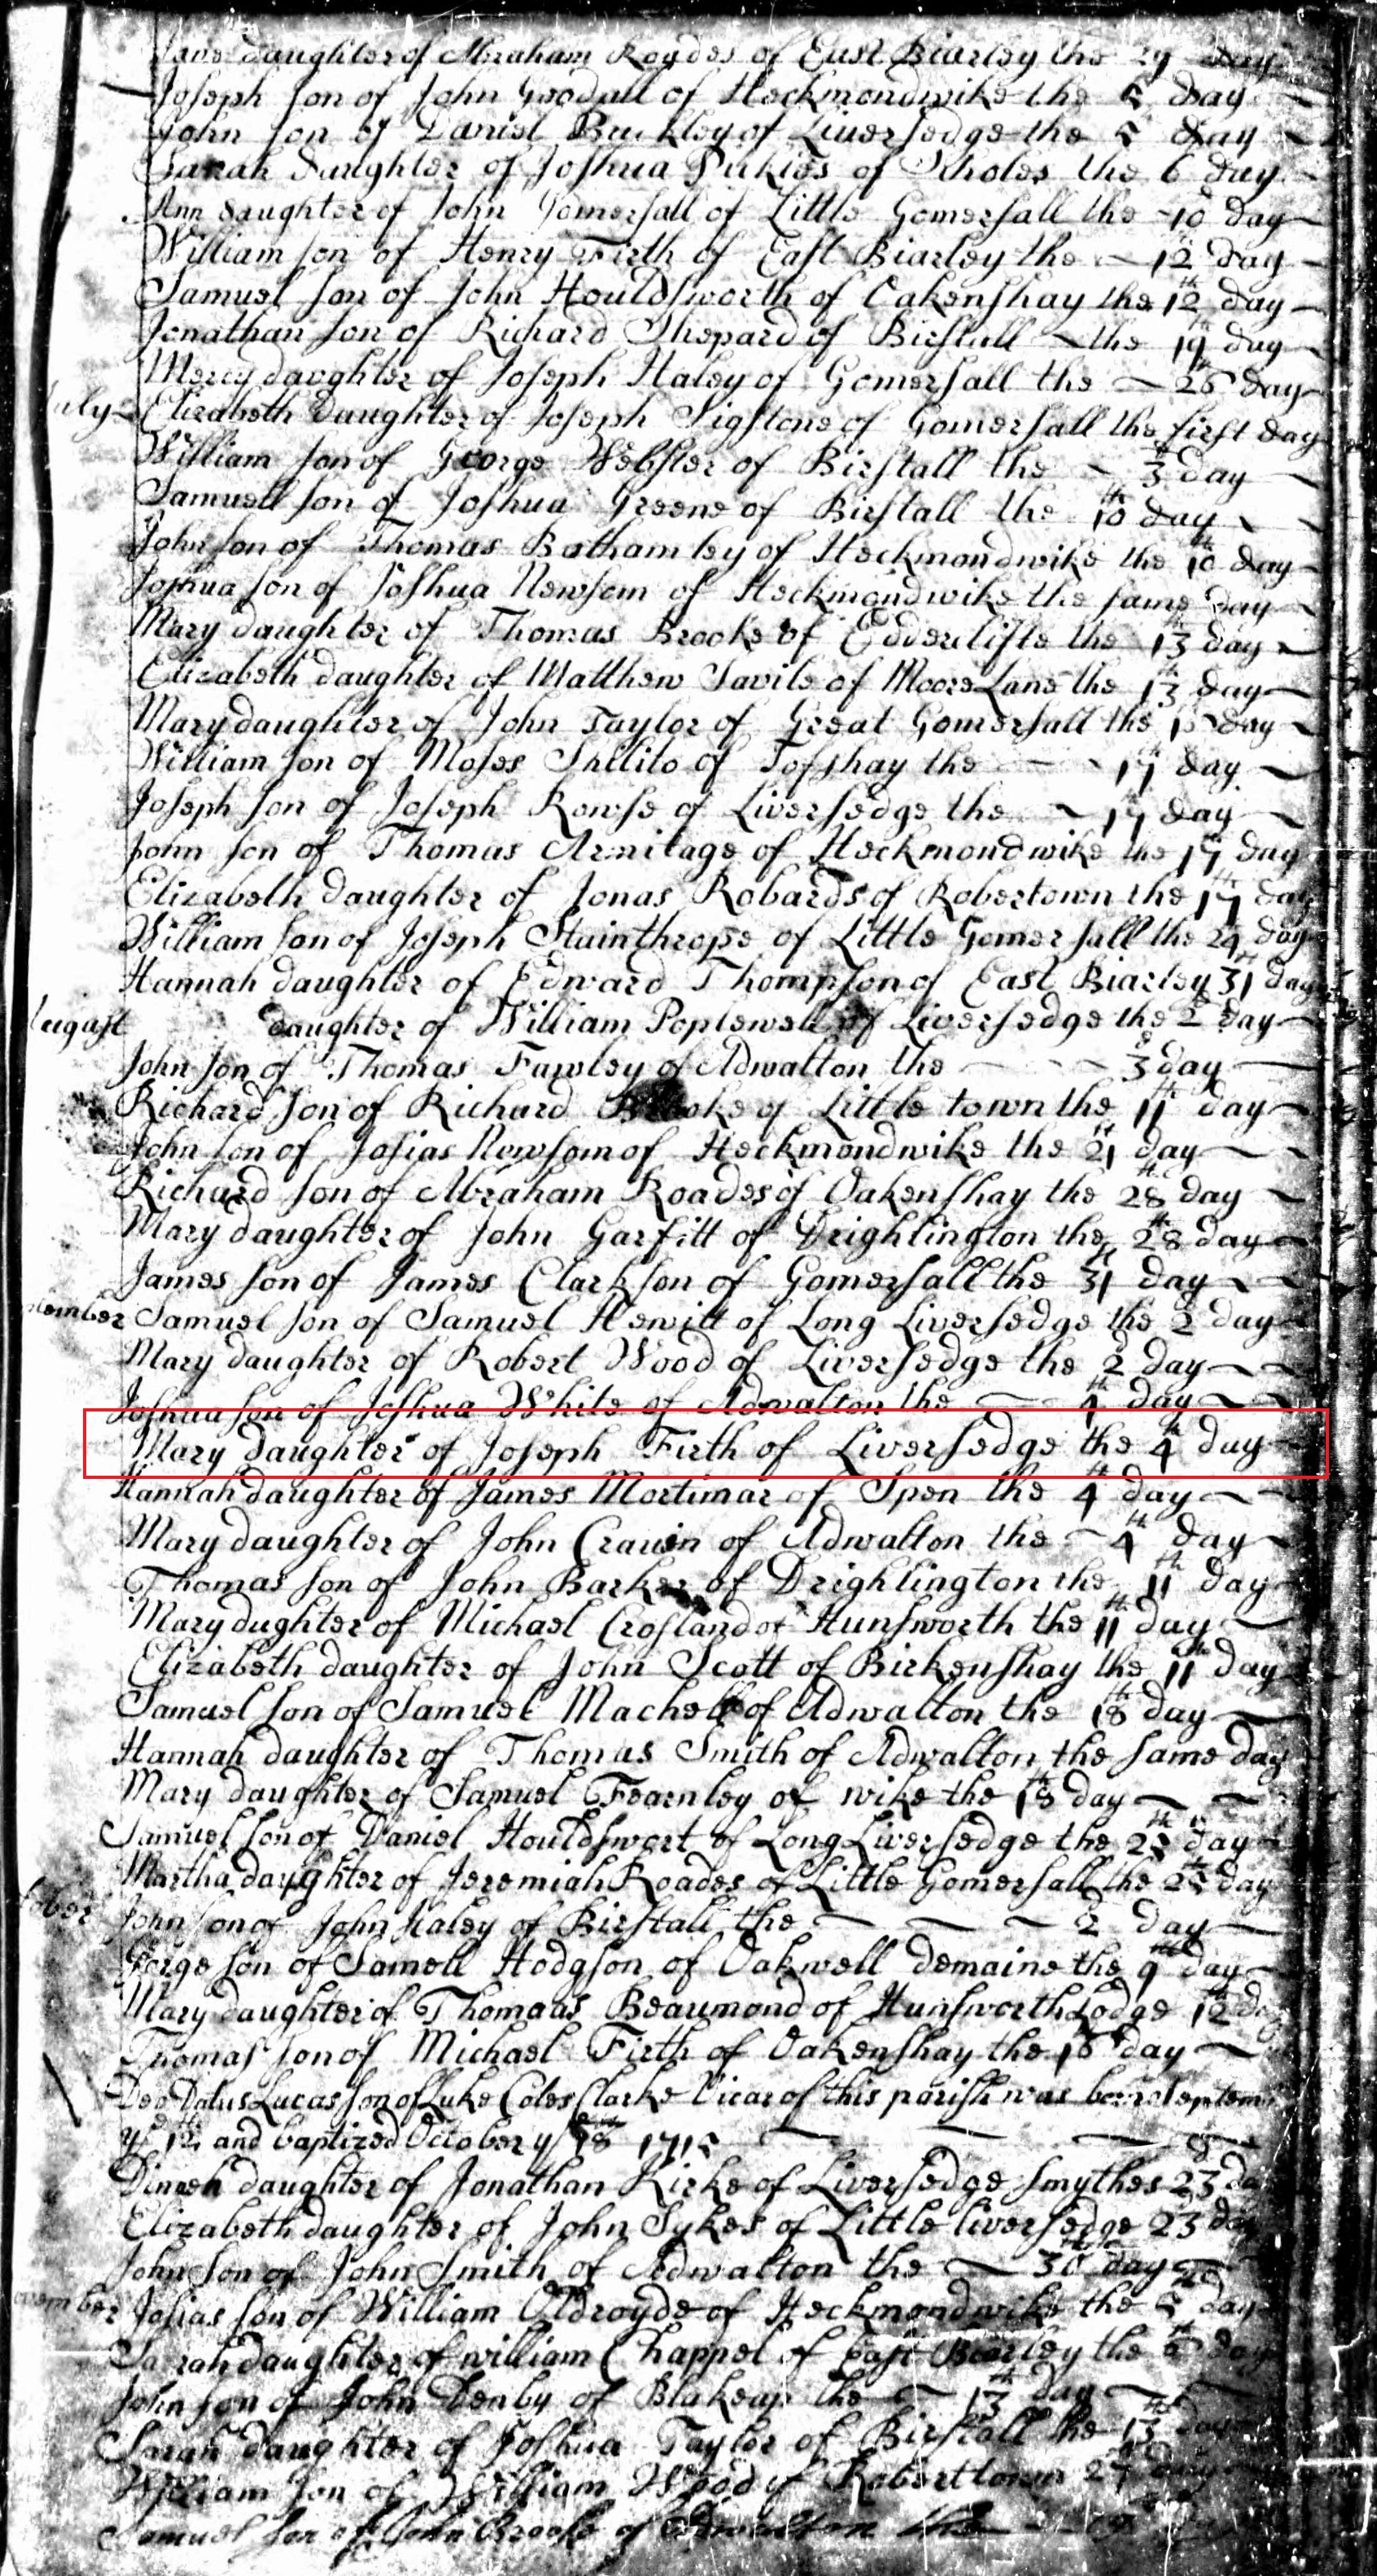 Jane daughter of Abraham Roydes of East Biarley the 29 day
Joseph son of John Goodall of Heckmondwike the 5 day
John son of Daniel Buckley of Liversedge the 5 day
Sarah daughter of Joshua of Scholes the 6 day
Ann daughter of John Gomersall of Little Gomersall the 10 day
William son of Henry Firth of East Biarley the 12 day
Samuel son of John Houldsworth of Oakenshay the 12th day
Jonathan son of Richard Shepard of Birstall the 19 day
Mercy daughter of Joseph Haley of Gomersall the 26 day
July Elizabeth daughter of Joseph Sigstone of Gomersall the first day
William son of George Webster of Birstall the 3d day
Samuell son of Joshua Greene of Birstall the 10th day
John son of Thomas Bothamley of Heckmondwike the 10th day
Joshua son of Joshua Newsom of Heckmondwike the same day
Mary daughter of Thomas Brooke of the 13th day
Elizabeth daughter of Matthew Savile of Moore Lane the 13th day
Mary daughter of John Taylor of Great Gomersall the day
William son of Moses Shillito of Tofshay the 17th day
Joseph son of Joseph Rowse of Liversedge the 17th day
John son of Thomas Armitage of Heckmondwike the 17 day
Elizabeth daughter of Jonas Robards of Robertown the 17th day
William son of Joseph Stainthrope of Little Gomersall the 24 day
Hannah daughter of Edward Thompson of East Biarley 31 day
August daughter of William Poplewell of Liversedge the 2d day
John son of Thomas Fawley of Adwalton the 3d day
Richard son of Richard of Little town the 11th day
John son of Josias Newsom of Heckmondwike the 21 day
Richard son of Abraham Roades of Oakenshay the 28th day
Mary daughter of John Garfitt of Drighlington the 28th day
James son of James Clarkson of Gomersall the 31 day
tember Samuel son of Samuel Hewitt of Long Liversedge the 2 day
Mary daughter of Robert Wood of Liversedge the 2 day
Joshua son of Joshua White of Adwalton the 4th day
Mary daughter of Joseph Firth of Liversedge the 4th day
Hannah daughter of James Mortimar of Spen the 4th day
Mary daughter of John Craven of Adwalton the 4th day
Thomas son of John Barker of Drighlington the 11th day
Mary dughter of Michael Crosland of Hunsworth the 11th day
Elizabeth daughter of John Scott of Birkenshay the 11th day
Samuel son of Samuel Machell of Adwalton the 18th day
Hannah daughter of Thomas Smith of Adwalton the same day
Mary daughter of Samuel Fearnley of wike the 18th day
Samuel son of Daniel Houldswort of Long Liversedge the 25th day
Martha daughter of Jeremiah Roades of Little Gomersall the 25th day
ober John son of John Haley of Birstall the 2 day
Gorge son of Samell Hodgson of Oakwell demaine the 9th day
Mary daughter of Thomas Beaumond of Hunsworth Lodge 12 day
Thomas son of Michael Firth of Oakenshay the 16 day
Deo Datus Lucas son of Luke Coles Clarke Vicar of this parish was borne Septem
ye 12th and baptized October ye 18th 1715
Dineh daughter of Jonathan Kirke of Liversedge smythes 23d da
Elizabeth daughter of John Sykes of Little liversedge 23 day
John son of John Smith of Adwalton the 30 day
ovember Josias son of William Oldroyde of Heckmondwike the 5 day
Sarah daughter of william Chappel of East Biarley the 6 day
John son of John Denby of Blakeup the 13th day
Sarah daughter of Joshua Taylor of Birstall the 13th day
William son of William Wood of Roberttown 27 day
Samuel son of John Brooke of Adwalton the